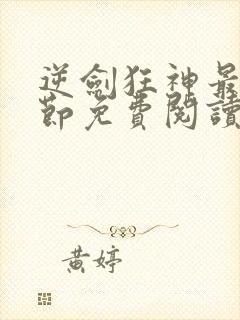 逆劍狂神最
節免費閱讀
黃婷